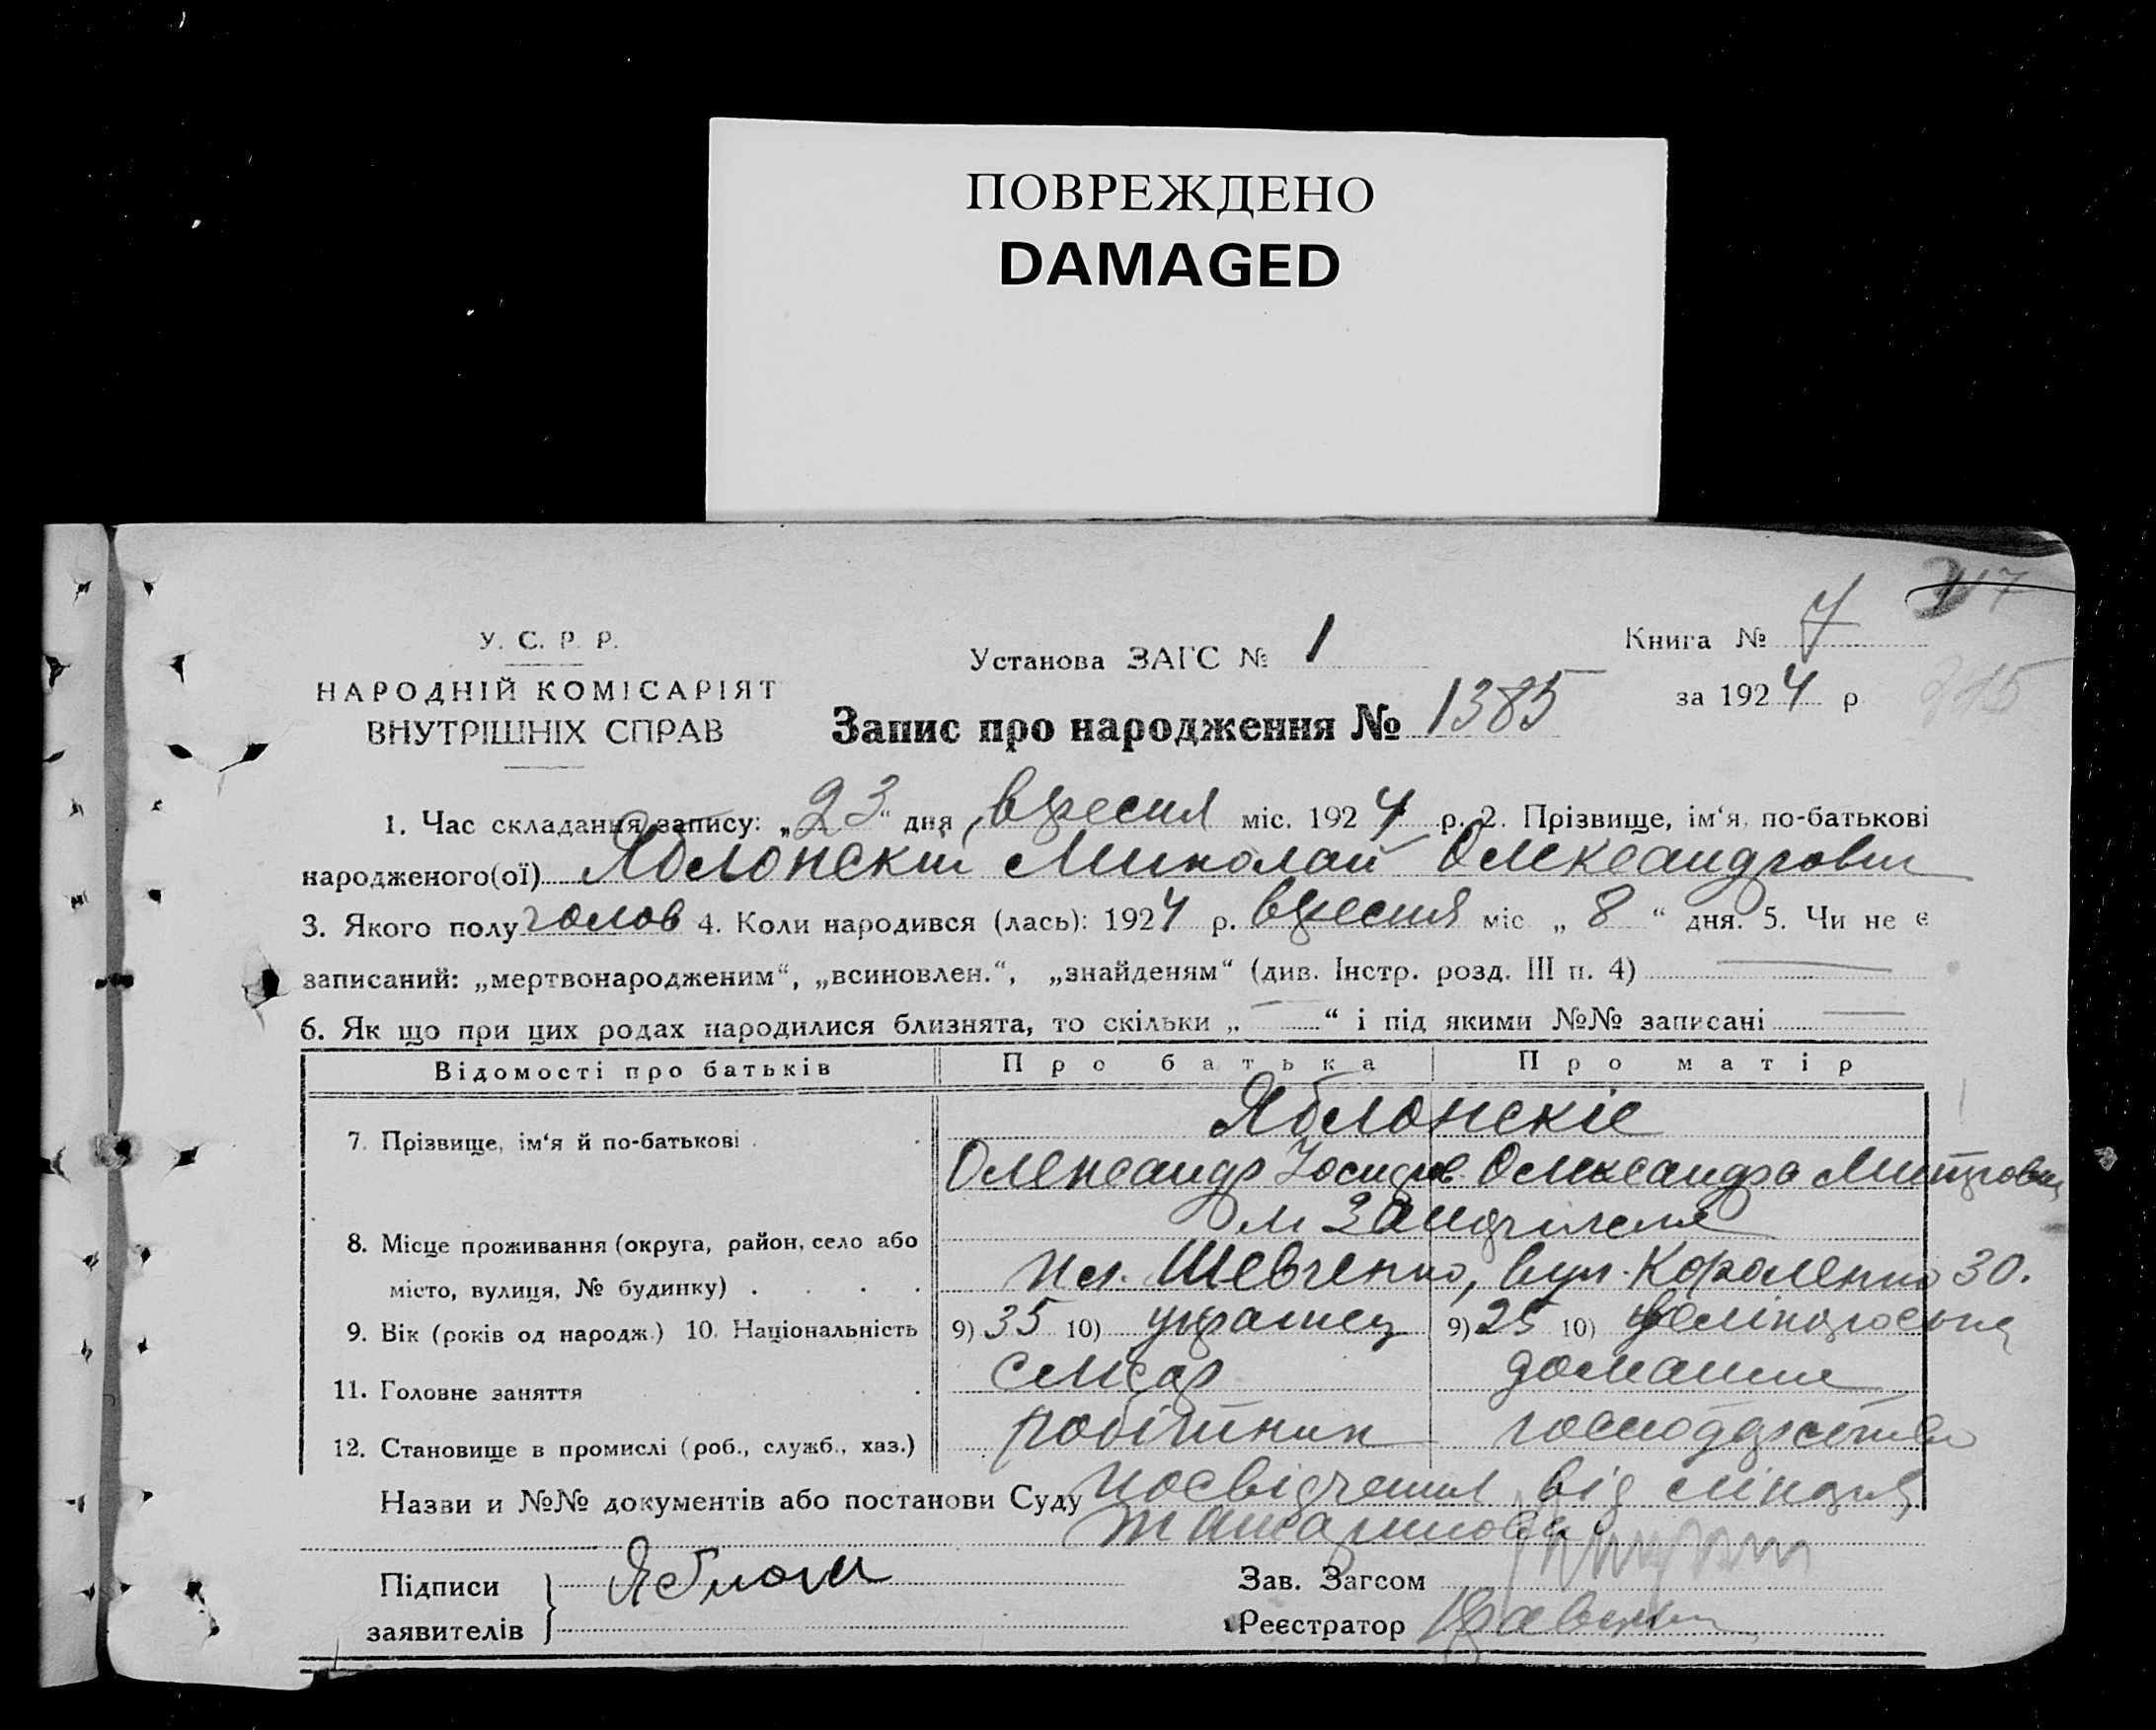 ПОВРЕЖДЕНО
DAMAGED
У. С. Р. Р.
НАРОДНІЙ КОМІСАРІЯТ
ВНУТРІШНІХ СПРАВ
Установа ЗАГС № 1
Книга № 7
за 1924 р
Запис про народження № 1385
1. Час складання запису: „23“ дня вересня міс. 1924 р. 2. Прізвище, ім‘я, по-батькові
народженого(ої) Яблонскій Миколай Олександрович
3. Якого полу чолов 4. Коли народився (лась): 1924 р. вересня міс „ 8 “ дня. 5. Чи не є
записаний: „мертвонародженим“, „всиновлен.“, „знайденям“ (див. Інстр. розд. III п. 4)
6. Як що при цих родах народилися близнята, то скільки „ “ і під якими №№ записані
Відомості про батьків Про батька Про матір
7. Прізвище, ім‘я й по-батькові Яблонскіе
Олександр Йосипов. Олександра Митрович
8. Місце проживання (округа, район, село або
місто, вулиця, № будинку) . . . . Шевченко, вул. Короленко 30.
9. Вік (років од народж.) 10. Національність 9) 35 10) украинец 9) 25 10)
11. Головне заняття слюсар домашне
12. Становище в промислі (роб., служб., хаз.) робітник господарство
Назви и №№ документів або постанови Суду посвідчення від
Підписи
заявителів
Зав. Загсом
Реєстратор